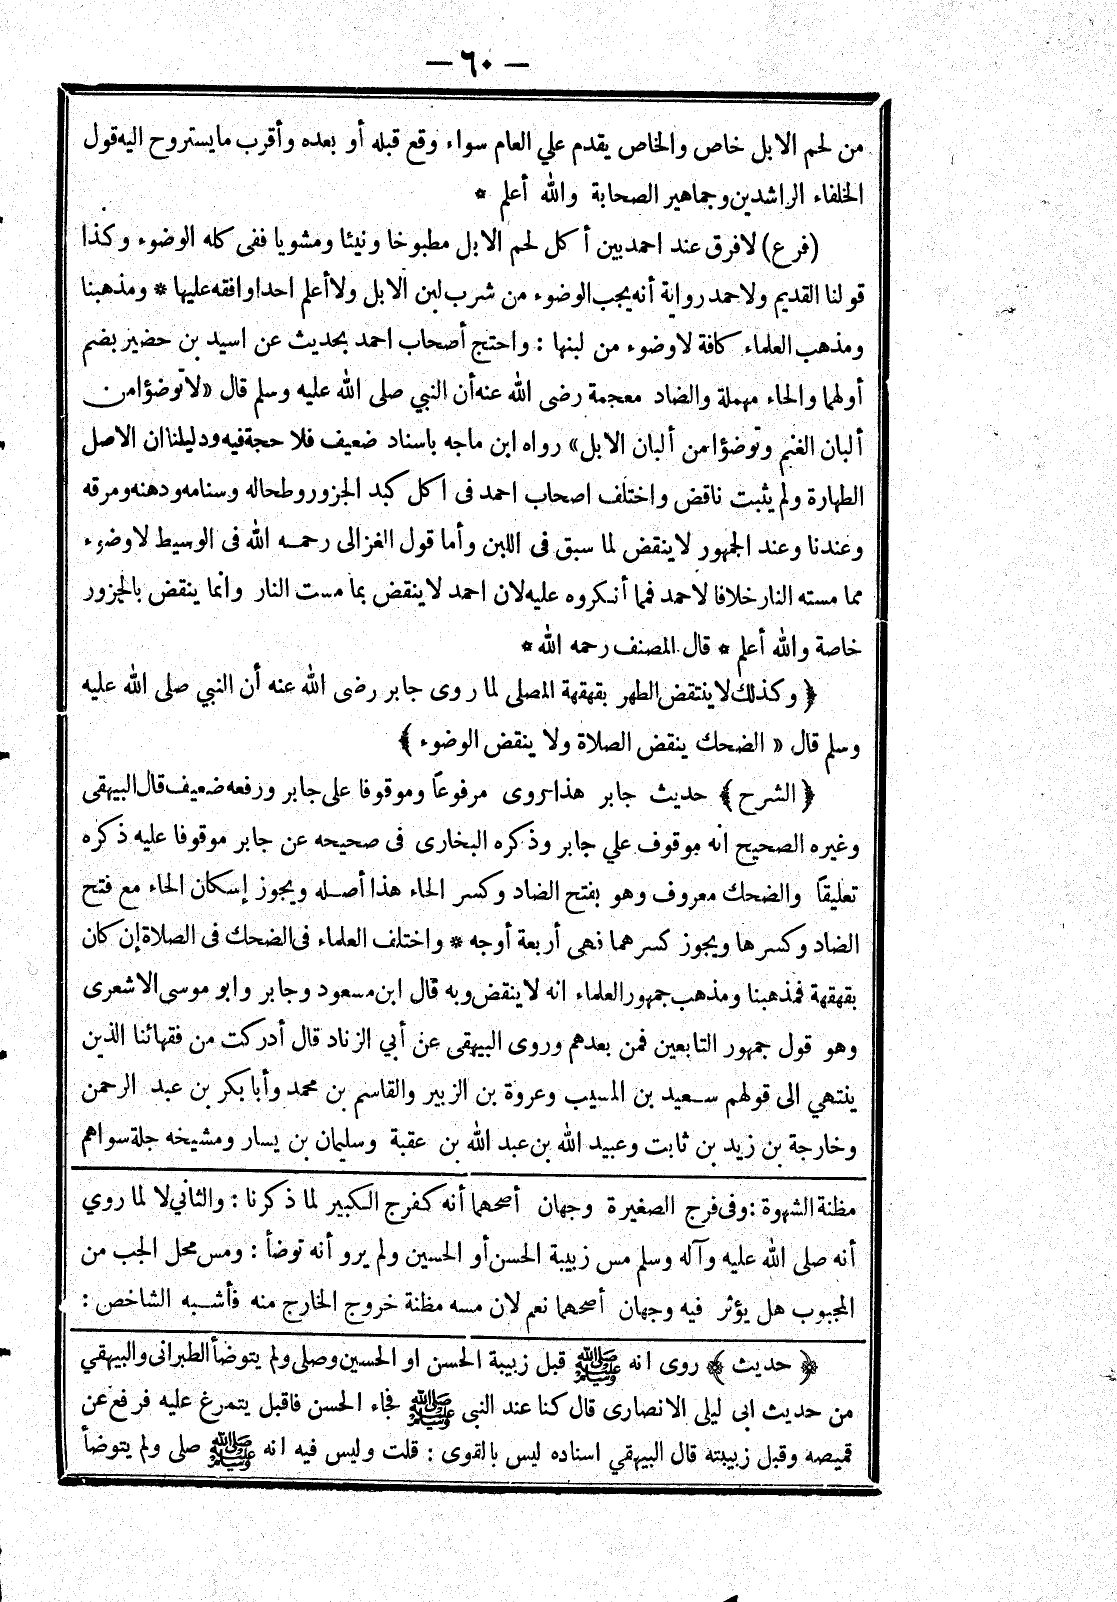 — ٦٠ —
من لحم الابل خاص والخاص يقدم علي العام سواء وقع قبله أو بعده وأقرب ما يستروح اليه قول
الخلفاء الراشدين وجماهير الصحابة والله أعلم *
(فرع) لا فرق عند احمد بين أكل لحم الابل مطبوخا ونيئا ومشويا ففى كله الوضوء وكذا
قولنا القديم ولاحمد رواية أنه يجب الوضوء من شرب لبن الابل ولا أعلم احدا وافقه عليها * ومذهبنا
ومذهب العلماء كافة لا وضوء من لبنها : واحتج أصحاب احمد بحديث عن اسيد بن حضير بضم
أولهما والحاء مهملة والضاد معجمة رضى الله عنه أن النبي صلى الله عليه وسلم قال «لا توضؤا من
ألبان الغنم وتوضؤا من ألبان الابل» رواه ابن ماجه باسناد ضعيف فلا حجة فيه ودليلنا ان الاصل
الطهارة ولم يثبت ناقض واختلف اصحاب احمد فى اكل كبد الجزور وطحاله وسنامه ودهنه ومرقه
وعندنا وعند الجمهور لا ينقض لما سبق فى اللبن وأما قول الغزالى رحمه الله فى الوسيط لا وضوء
مما مسته النار خلافا لاحمد فمما أنكروه عليه لان احمد لا ينقض بما مست النار وانما ينقض بالجزور
خاصة والله أعلم * قال المصنف رحمه الله *
﴿ وكذلك لا ينتقض الطهر بقهقهة المصلى لما روى جابر رضى الله عنه أن النبي صلى الله عليه
وسلم قال « الضحك ينقض الصلاة ولا ينقض الوضوء ﴾
﴿ الشرح ﴾ حديث جابر هذا روى مرفوعاً وموقوفا على جابر ورفعه ضعيف قال البيهقى
وغيره الصحيح انه موقوف علي جابر وذكره البخارى فى صحيحه عن جابر موقوفا عليه ذكره
تعليقاً والضحك معروف وهو بفتح الضاد وكسر الحاء هذا أصله ويجوز إسكان الحاء مع فتح
الضاد وكسرها ويجوز كسرهما فهى أربعة أوجه * واختلف العلماء فى الضحك فى الصلاة إن كان
بقهقهة فمذهبنا ومذهب جمهور العلماء انه لا ينقض وبه قال ابن مسعود وجابر وابو موسى الاشعرى
وهو قول جمهور التابعين فمن بعدهم وروى البيهقى عن أبي الزناد قال أدركت من فقهائنا الذين
ينتهي الى قولهم سعيد بن المسيب وعروة بن الزبير والقاسم بن محمد وأبا بكر بن عبد الرحمن
وخارجة بن زيد بن ثابت وعبيد الله بن عبد الله بن عقبة وسليمان بن يسار ومشيخه جلة سواهم
مظنة الشهوة : وفى فرج الصغيرة وجهان أصحهما أنه كفرج الكبير لما ذكرنا : والثاني لا لما روي
أنه صلى الله عليه وآله وسلم مس زبيبة الحسن أو الحسين ولم يرو أنه توضأ : ومس محل الجب من
المجبوب هل يؤثر فيه وجهان أصحهما نعم لان مسه مظنة خروج الخارج منه فأشبه الشاخص :
﴿ حديث ﴾ روى انه ﷺ قبل زبيبة الحسن او الحسين وصلى ولم يتوضأ الطبرانى والبيهقي
من حديث ابى ليلى الانصارى قال كنا عند النبى ﷺ فجاء الحسن فاقبل يتمرغ عليه فرفع عن
قميصه وقبل زبيبته قال البيهقي اسناده ليس بالقوى : قلت وليس فيه انه ﷺ صلى ولم يتوضأ